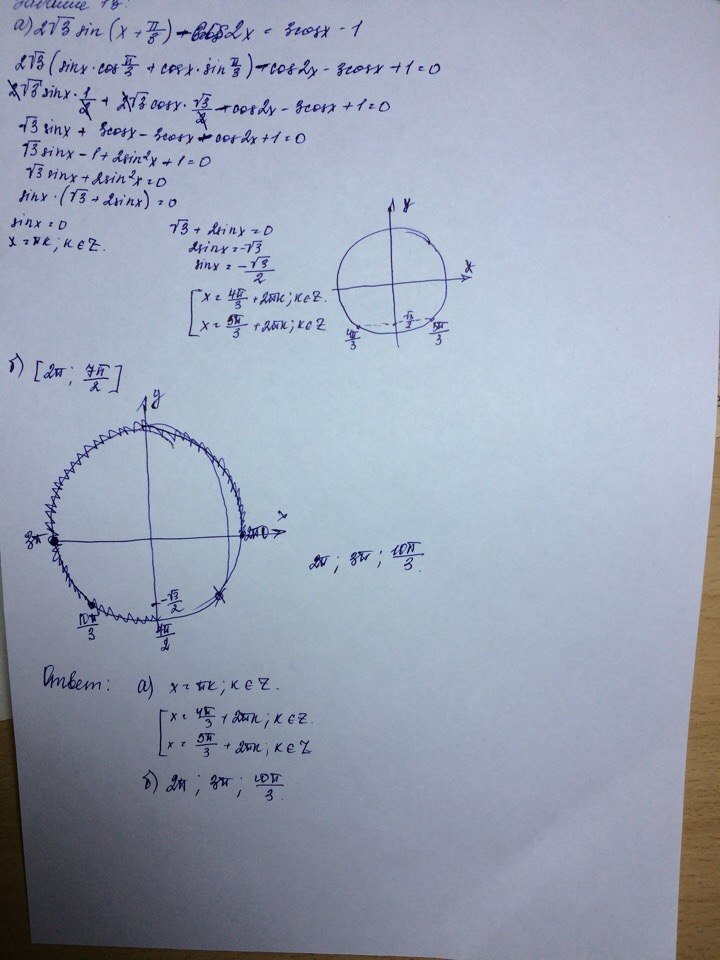 Задание 13:
а) 2√3 sin (x + π/3) - cos2x = 3cosx - 1
2√3 (sinx · cos π/3 + cosx · sin π/3) - cos2x - 3cosx + 1 = 0
2√3 sinx · 1/2 + 2√3 cosx · √3/2 - cos2x - 3cosx + 1 = 0
√3 sinx + 3cosx - 3cosx - cos2x + 1 = 0
√3 sinx - 1 + 2sin²x + 1 = 0
√3 sinx + 2sin²x = 0
sinx · (√3 + 2sinx) = 0
sinx = 0
x = πк; к ∈ Z.
√3 + 2sinx = 0
2sinx = -√3
sinx = -√3/2
[ x = 4π/3 + 2πк; к ∈ Z.
x = 5π/3 + 2πк; к ∈ Z
y
x
4π/3
√3/2
5π/3
б) [2π; 7π/2]
y
x
3π
2π
10π/3
-√3/2
7π/2
2π ; 3π ; 10π/3.
Ответ: а) x = πк; к ∈ Z.
[ x = 4π/3 + 2πк; к ∈ Z.
x = 5π/3 + 2πк; к ∈ Z
б) 2π ; 3π ; 10π/3.